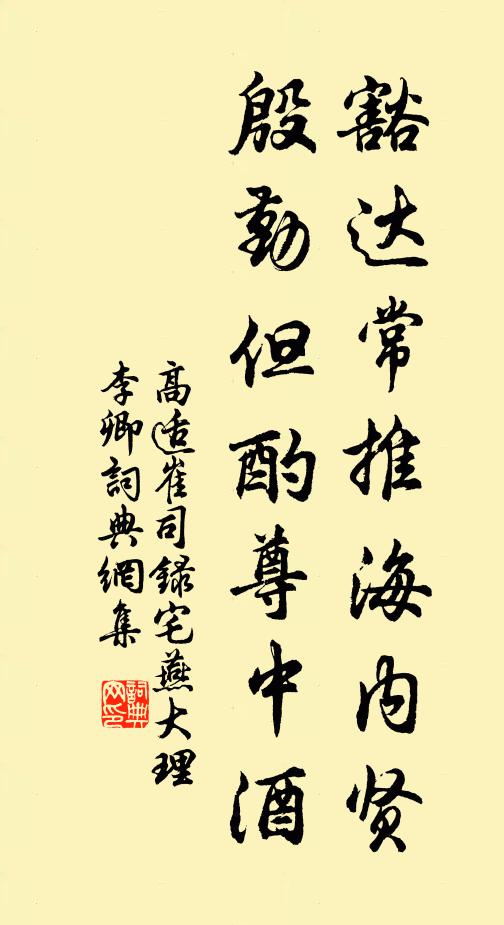 豁达常推海内贤
殷勤但酌尊中酒
高适崔司録宅燕大理
李卿詞典網集
詞典网印